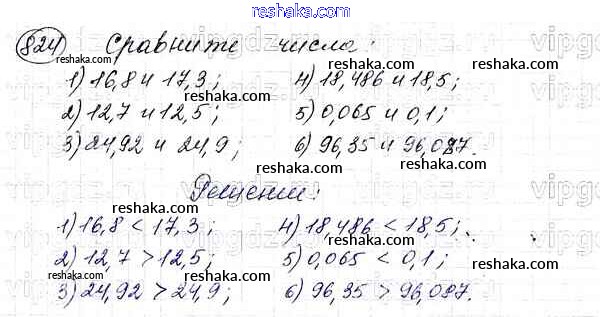 reshaka.com
824 Сравните числа:
reshaka.com
1) 16,8 и 17,3; 4) 18,486 и 18,5;
reshaka.com reshaka.com
2) 12,7 и 12,5; 5) 0,065 и 0,1;
reshaka.com reshaka.com
3) 24,92 и 24,9; 6) 96,35 и 96,087.
reshaka.com reshaka.com
Решение:
reshaka.com
1) 16,8 < 17,3; 4) 18,486 < 18,5;
reshaka.com reshaka.com
2) 12,7 > 12,5; 5) 0,065 < 0,1;
reshaka.com reshaka.com
3) 24,92 > 24,9; 6) 96,35 > 96,087.
reshaka.com reshaka.com